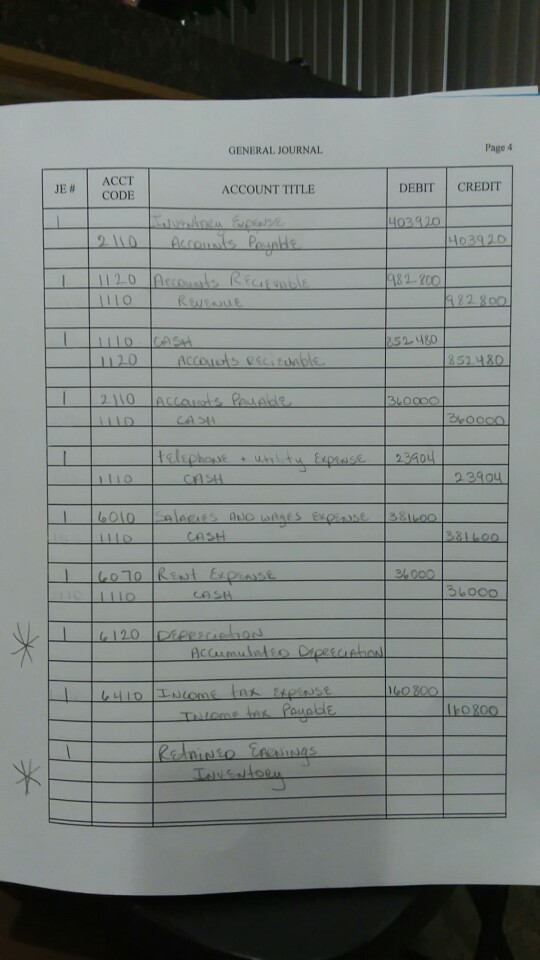 GENERAL JOURNAL Page 4
JE # ACCT CODE ACCOUNT TITLE DEBIT CREDIT
1 Inventory Expense 403920
2110 Accounts Payable 403920
1 1120 Accounts Recievable 982800
1110 Revenue 982800
1 1110 CASH 852480
1120 Accounts recievable 852480
1 2110 Accounts Payable 360000
1110 CASH 360000
1 telephone + utility Expense 23904
1110 CASH 23904
1 6010 Salaries AND wages Expense 381600
1110 CASH 381600
1 6070 Rent Expense 36000
1110 CASH 36000
1 6120 Depreciation
Accumulated Depreciation
1 6410 Income tax expense 160800
Income tax Payable 160800
1 Retained Earnings
Inventory